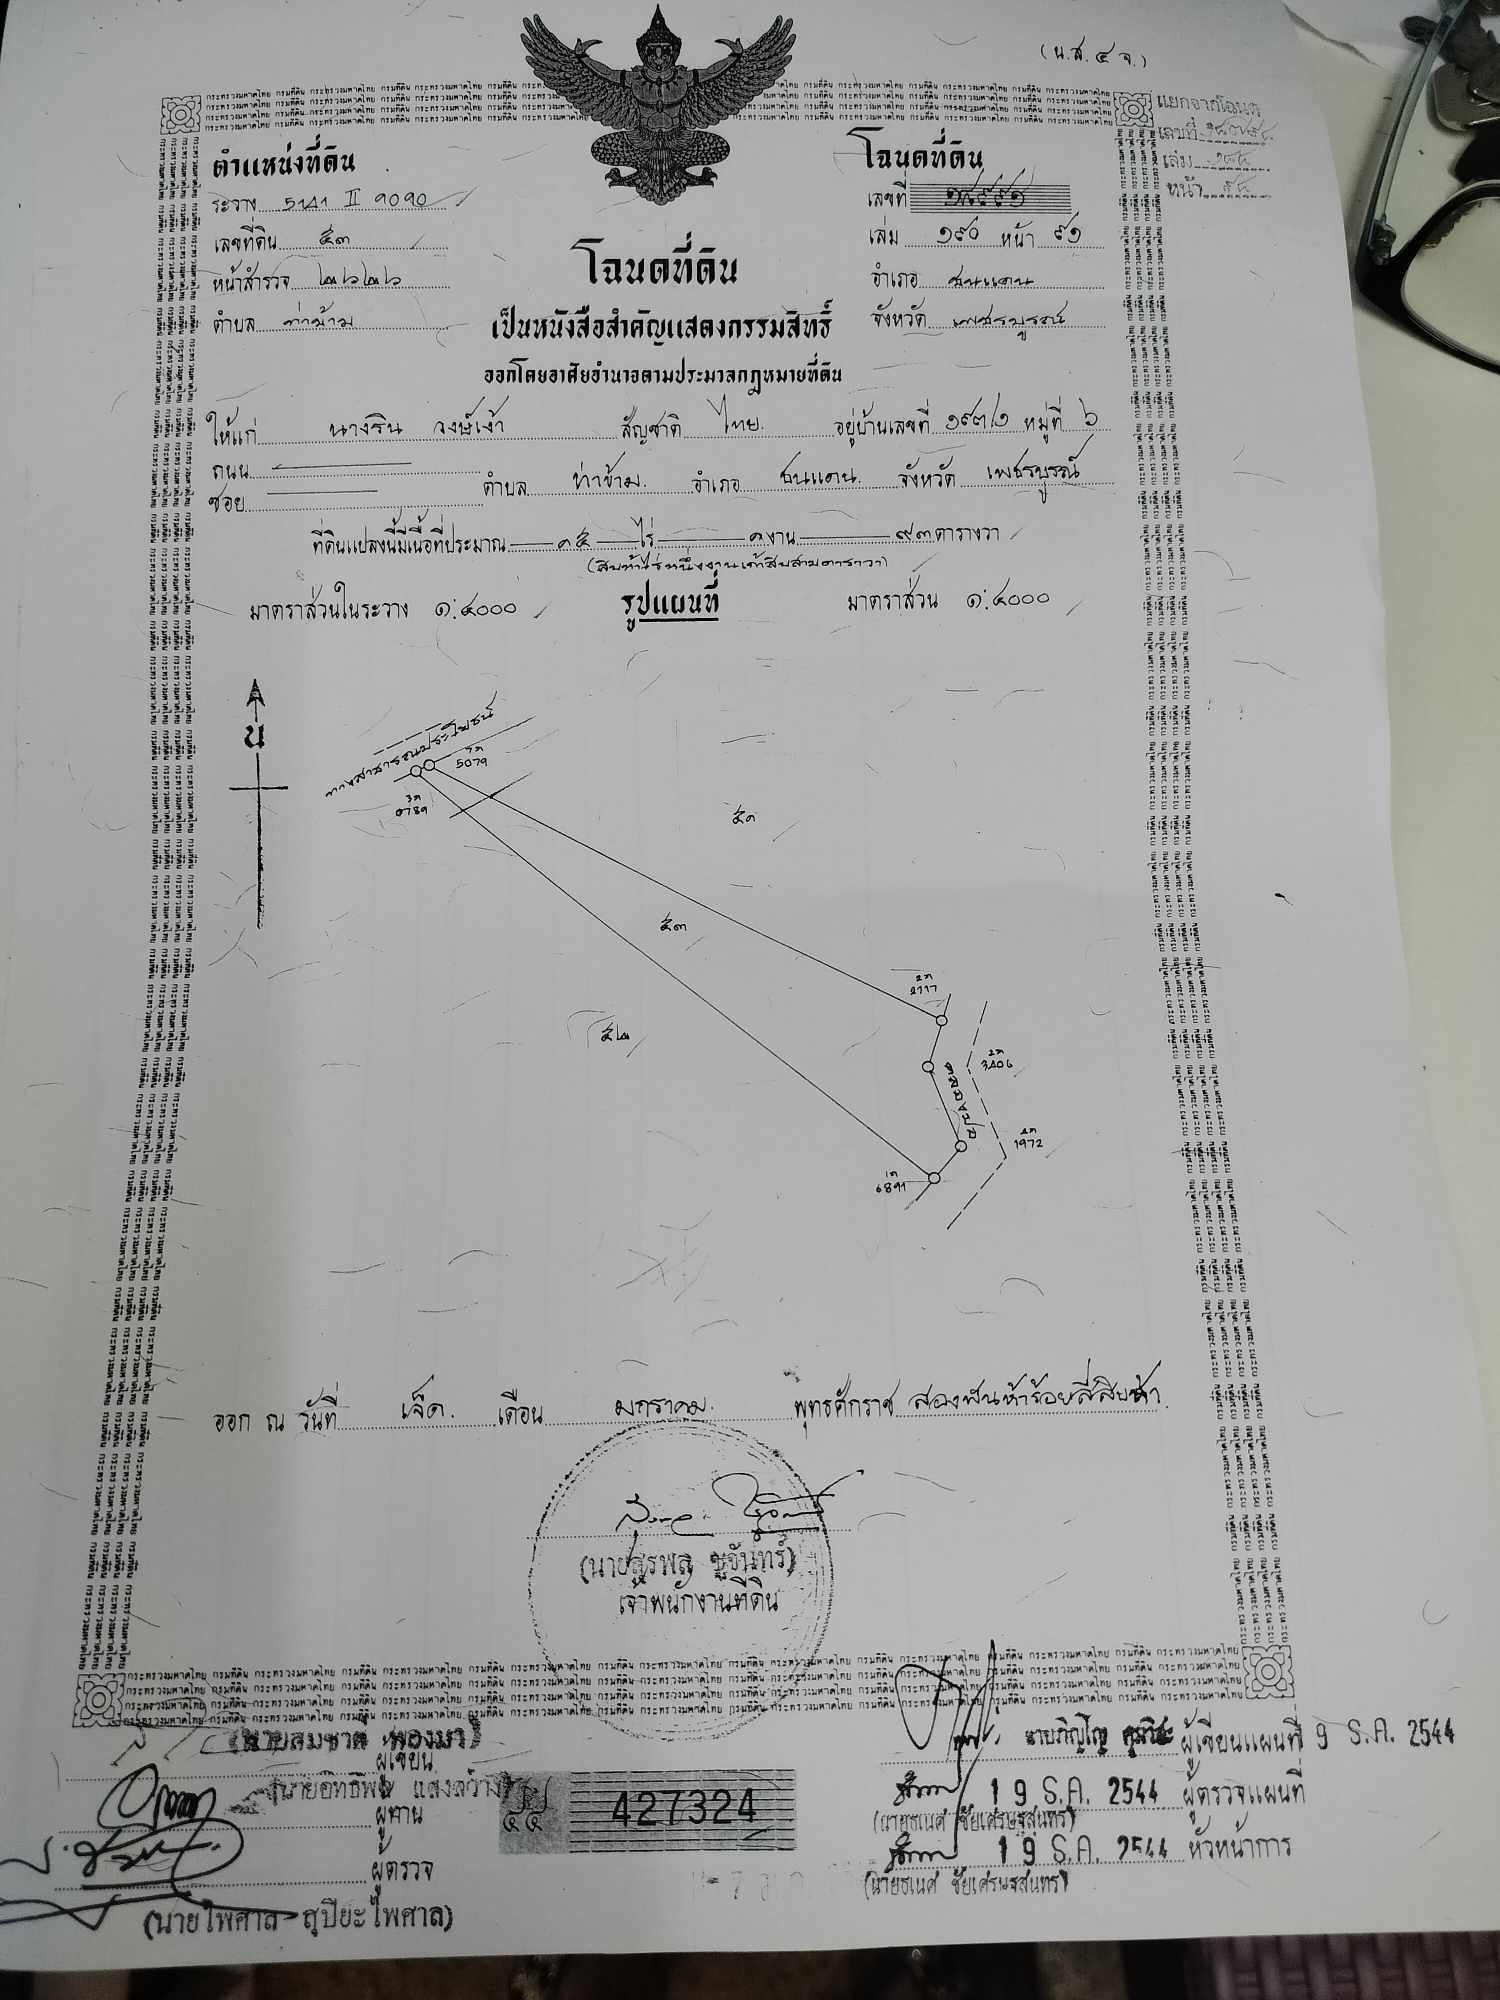 (น.ส. ๔ จ.)
แยกจากโฉนด
เลขที่
เล่ม
หน้า
ตำแหน่งที่ดิน
ระวาง 5141 II 9090
เลขที่ดิน ๕๓
หน้าสำรวจ ๒๖๒๖
ตำบล ท่าข้าม
โฉนดที่ดิน
เลขที่ ๑๙๙๙๑
เล่ม ๑๙๐ หน้า ๙๑
อำเภอ ชนแดน
จังหวัด เพชรบูรณ์
โฉนดที่ดิน
เป็นหนังสือสำคัญแสดงกรรมสิทธิ์
ออกโดยอาศัยอำนาจตามประมวลกฎหมายที่ดิน
ให้แก่ นางริน วงษ์เง้า สัญชาติ ไทย. อยู่บ้านเลขที่ ๑๙๓/๑ หมู่ที่ ๖
ถนน
ซอย ตำบล ท่าข้าม. อำเภอ ชนแดน. จังหวัด เพชรบูรณ์
ที่ดินแปลงนี้มีเนื้อที่ประมาณ ๑๕ ไร่ ๑ งาน ๙๓ ตารางวา
(สิบห้าไร่หนึ่งงานเก้าสิบสามตารางวา)
มาตราส่วนในระวาง ๑:๔๐๐๐ รูปแผนที่ มาตราส่วน ๑:๔๐๐๐
น
ทางสาธารณประโยชน์
5079
๕๑
๕๓
๕๒
คลองบุษ
1972
ออก ณ วันที่ เจ็ด. เดือน มกราคม. พุทธศักราช สองพันห้าร้อยสี่สิบห้า
(นายสุรพล ชูจันทร์)
เจ้าพนักงานที่ดิน
(นายสมชาติ พองมา)
ผู้เขียน
(นายอิทธิพล แสงสว่าง)
ผู้ทาน
ผู้ตรวจ
(นายไพศาล สุปิยะไพศาล)
๔๕ 427324
ผู้เขียนแผนที่ 9 ธ.ค. 2544
19 ธ.ค. 2544 ผู้ตรวจแผนที่
(นายธเนศ ชัยเศรษฐสุนทร)
19 ธ.ค. 2544 หัวหน้าการ
(นายธเนศ ชัยเศรษฐสุนทร)